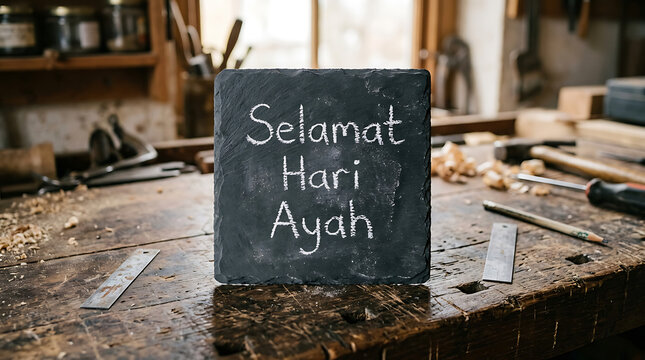 Selamat
Hari
Ayah